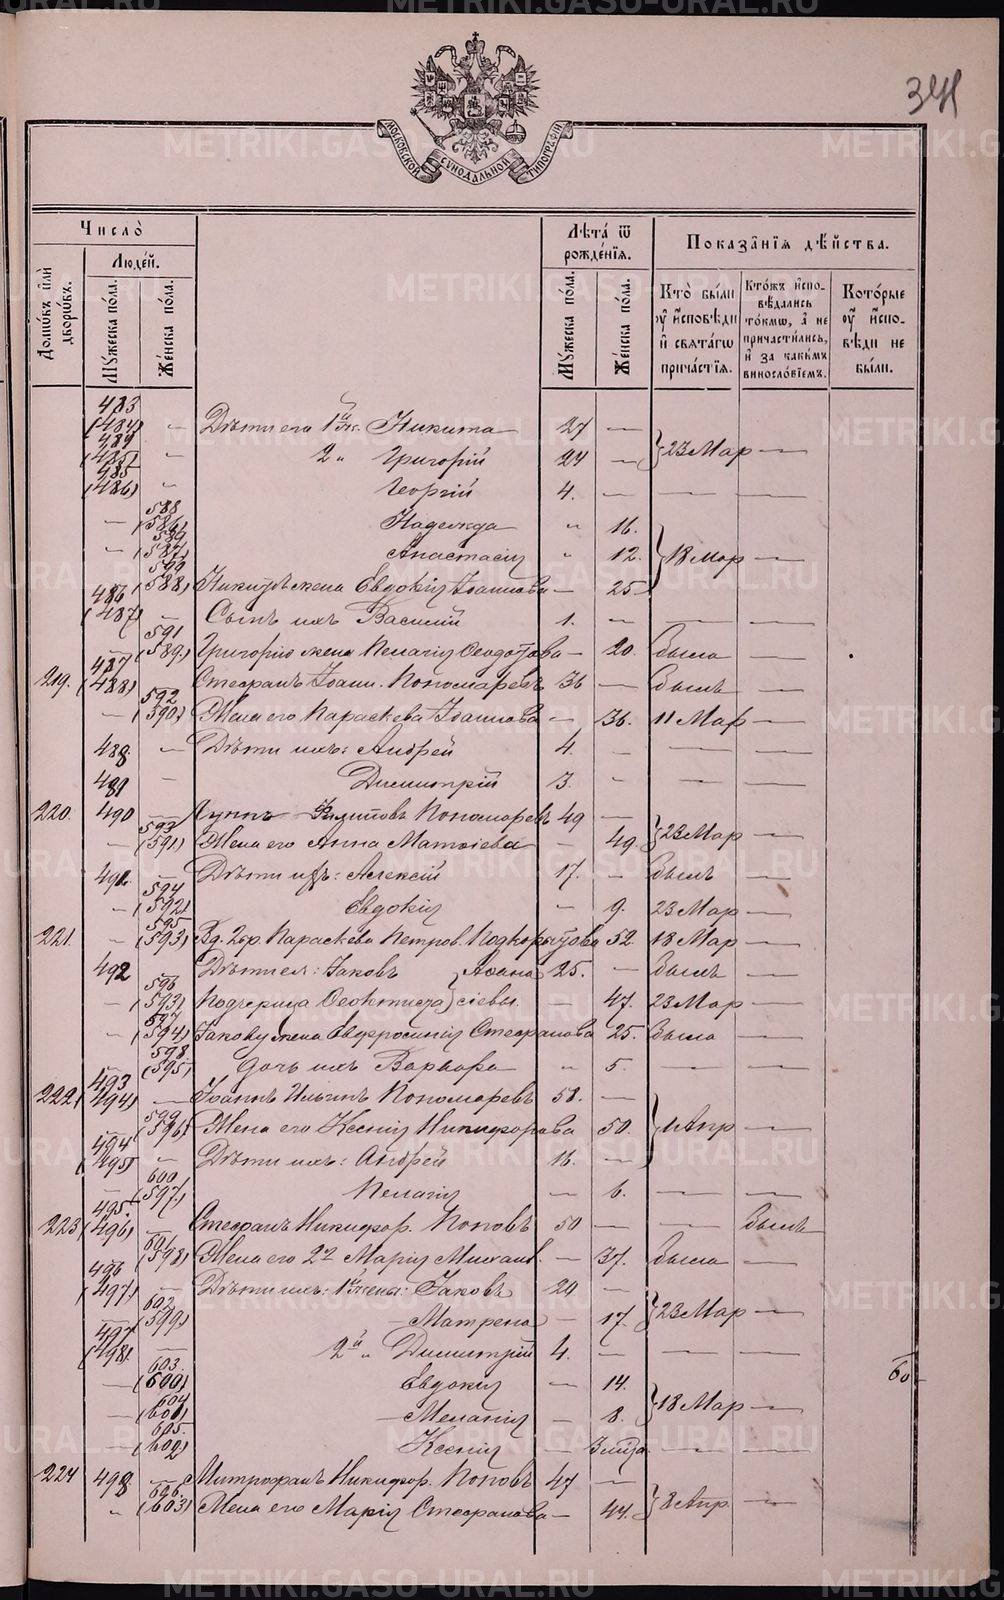 METRIKI.GASO-URAL.RU
МОСКОВСКОЙ СѴНОДАЛЬНОЙ ТИПОГРАФІИ
Число̀
Людей.
Домѡвъ илѝ дворѡвъ.
Мꙋжеска по́ла.
Же́нска по́ла.
Лѣта́ ѿ рожде́нїѧ.
Мꙋжеска по́ла.
Же́нска по́ла.
Показа̑нїѧ дѣ́йства.
Кто̀ бы́ли ᲂу҆ и҆сповѣ́ди и҆ свѧта́гѡ прича́стїѧ.
Кто́жъ и҆спо-вѣ́дались то́кмѡ, а҆ не причасти́лись, и҆ за каки́мъ винословїемъ.
Кото́рые ᲂу҆ и҆спо-вѣ́ди не бы́ли.
483 (484) — Дѣти его 1й ж. Никита 27 — } 23 Мар —
484 (485) — 2 " Григорій 24 —
485 (486) — Георгій 4. — — —
— 588 (586) Надежда " 16. } 18 Мар —
— 589 (587) Анастасія " 12.
590 (588) Никиты жена Евдокія Іоаннова — 25
486 (487) — Сынъ ихъ Василій 1. — — —
— 591 (589.) Григорію жена Пелагія Ѳеодотова — 20. Была —
219. 487 (488) Стефанъ Іоанн. Пономаревъ 36 — Былъ —
— 592 (590) Жена его Параскева Іоаннова — 36. 11 Мар —
488 — Дѣти ихъ: Андрей 4. — — —
489 — Димитрій 3. — — —
220. 490 — Луппъ Филиповъ Пономаревъ 49 — } 23 Мар —
— 593 (591) Жена его Анна Матѳіева — 49
491 — Дѣти ихъ: Алексій 17. — Былъ —
— 594 (592) Евдокія — 9. 23 Мар —
221. — 595 (593) Вд. Параскева Петров. Подкорытова 52. 18 Мар —
492 Дѣти ея: Іаковъ } Аѳана 25. — Былъ —
— 596 (593) Падчерица Ѳеоктиста } сіевы. — 47. 23 Мар —
— 597 (594) Іакову жена Евфросинія Стефанова 25. Была —
— 598. (595) Дочь ихъ Варвара " 5. — —
222. 493 (494) — Іоаннъ Ильинъ Пономаревъ 58. — } 1 Апр —
— 599 (596) Жена его Ксенія Никифорова 50.
494 (495) — Дѣти ихъ: Андрей 16. —
— 600 (597) Пелагія — 6. — —
223 495. (496) — Стефанъ Никифор. Поповъ 50 — — Былъ
— 601 (598) Жена его 2я Марія Михаил. — 37. Была —
496 (497) — Дѣти ихъ: 1й жены: Іаковъ 20. — } 23 Мар —
— 602 (599) Матрена — 17.
497 (498) — 2й " Димитрій 4. — — —
— 603. (600) Евдокія — 14. } 18 Мар — 60
— 604 (601) Меланія — 8.
— 605. (602) Ксенія — — —
224 498 — Митрофанъ Никифор. Поповъ 47 — } 8 Апр —
" 606. (603) Жена его Марія Стефанова — 44.